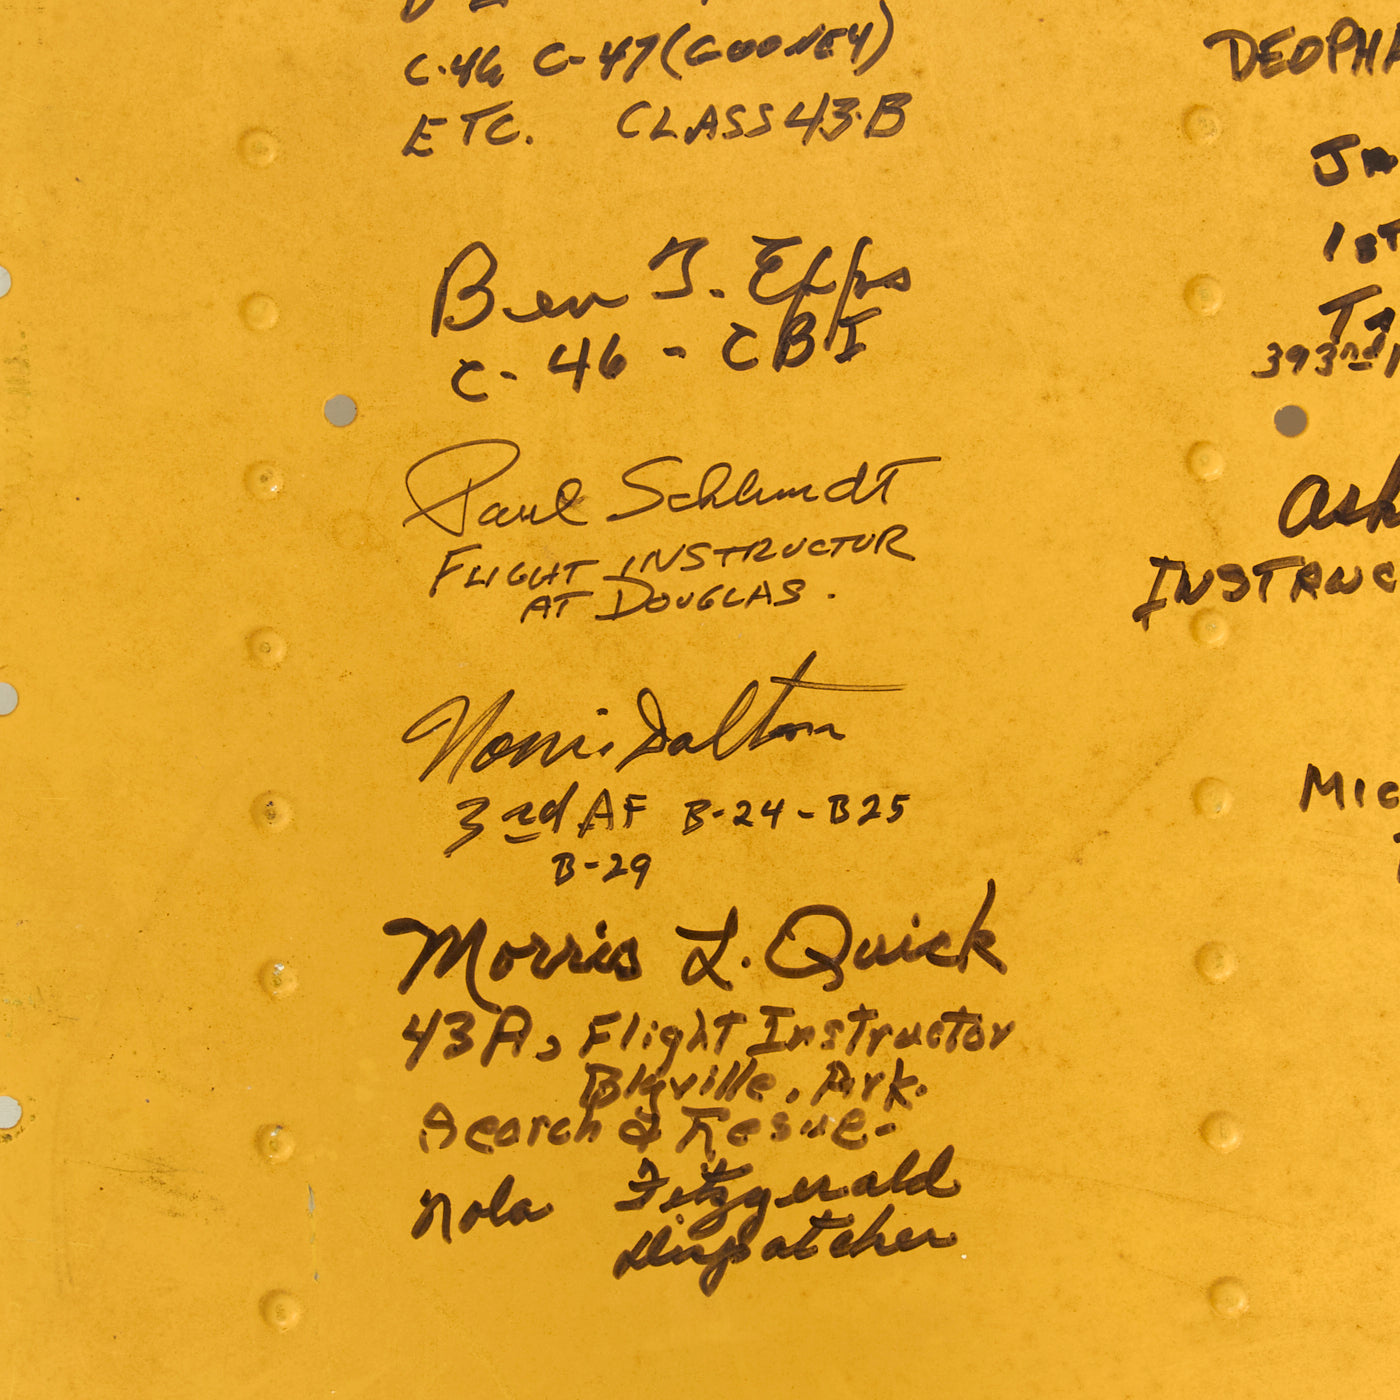 C-46 C-47 (GOONEY)
ETC. CLASS 43-B
Ben T. Epps
C-46 - CBI
Paul Schlundt
FLIGHT INSTRUCTOR
AT DOUGLAS.
Norris Dalton
3rd AF B-24-B25
B-29
Morris L. Quick
43A, Flight Instructor
Blyville, Ark.
Search & Resue-
Nola Fitzgerald
Dispatcher
DEOPHA
1st
393rd
Ash
INSTRUC
MIC